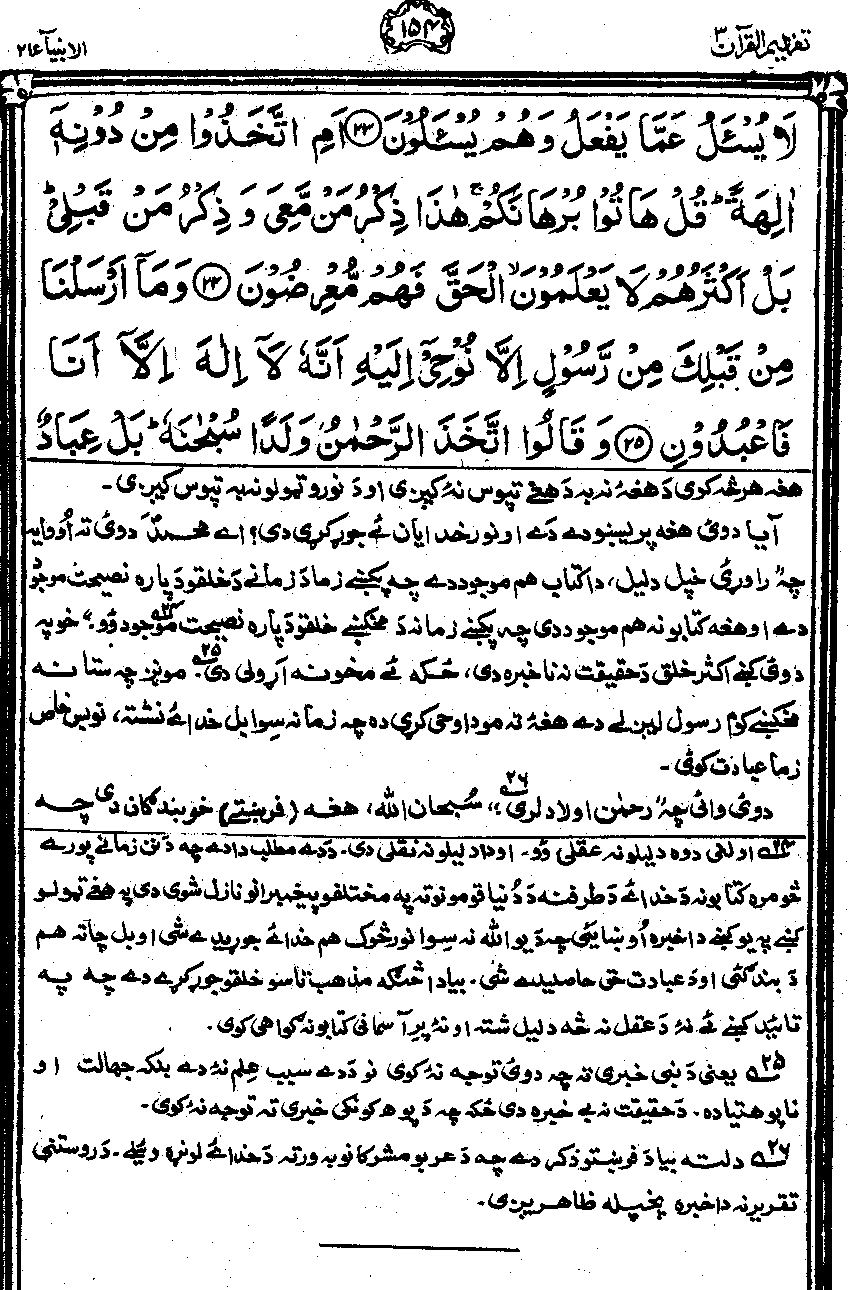 تفهیم القرآن ۳
۱۵۴
الانبیآء ۲۱
لَا يُسْـَٔلُ عَمَّا يَفْعَلُ وَهُمْ يُسْـَٔلُوْنَ ﴿۲۳﴾ اَمِ اتَّخَذُوْا مِنْ دُوْنِهٖٓ
اٰلِهَةً ؕ قُلْ هَاتُوْا بُرْهَانَكُمْ ۚ هٰذَا ذِكْرُ مَنْ مَّعِيَ وَ ذِكْرُ مَنْ قَبْلِيْ ؕ
بَلْ اَكْثَرُهُمْ لَا يَعْلَمُوْنَ ۙ الْحَقَّ فَهُمْ مُّعْرِضُوْنَ ﴿۲۴﴾ وَ مَآ اَرْسَلْنَا
مِنْ قَبْلِكَ مِنْ رَّسُوْلٍ اِلَّا نُوْحِيْٓ اِلَيْهِ اَنَّهٗ لَآ اِلٰهَ اِلَّآ اَنَا
فَاعْبُدُوْنِ ﴿۲۵﴾ وَ قَالُوا اتَّخَذَ الرَّحْمٰنُ وَلَدًا سُبْحٰنَهٗ ؕ بَلْ عِبَادٌ
هغه هر څه کوی د هغۀ نه به د هغے تپوس نۀ کیږی او د نورو ټولو نه به تپوس کیږی۔
آیا دوئ هغه پریښودے دے او نور خدایان ئے جوړ کړی دی؟ اے محمدؐ دوئ ته اووایه
چۀ راوړئ خپل دلیل، دا کتاب هم موجود دے چه پکښے زما د زمانے د خلقو دپاره نصیحت موجود
دے او هغه کتابونه هم موجود دی چه پکښے زما نه د مخکښے خلقو دپاره نصیحت موجود وُو۔“ ۲۴ خو په
دوئ کښے اکثر خلق د حقیقت نه ناخبره دی، ځکه ئے مخونه اړولی دی۔ ۲۵ مونږ چه ستا نه
مخکښے کوم رسول لیږلے دے هغۀ ته مو دا وحی کړی ده چه زما نه سوا بل خدائے نشته، نو بس خاص
زما عبادت کوئی۔
دوئ وائی چۀ ”رحمٰن اولاد لری“، ۲۶ سُبحان الله، هغه (فرښتے) خو بندګان دی چه
۲۴ اولنی دوه دلیلونه عقلی وُو۔ او دا دلیلونه نقلی دی۔ د دے مطلب دا دے چه د نن زمانے پورے
څومره کتابونه د خدائے د طرفه د دُنیا قومونو ته په مختلفو پیغمبرانو نازل شوی دی په هغے ټولو
کښے په یو کښے دا خبره اُوښایئی چه د یو الله نه سوا نور څوک هم خدائے جوړیدے شی او بل چا ته هم
د بندګئی او د عبادت حق حاصلیدے شی۔ بیا دا څنګه مذهب تاسو خلقو جوړ کړے دے چه په
تائید کښے ئے نۀ د عقل نه څه دلیل شته او نۀ پرِ آسمانی کتابونه ګواهی کوی۔
۲۵ یعنی د نبی خبری ته چه دوئ توجه نۀ کوی نو د دے سبب علم نۀ دے بلکه جهالت او
ناپوهتیا ده۔ د حقیقت نه بے خبره دی ځکه چه د پوهه کونکی خبری ته توجه نۀ کوی۔
۲۶ دلته بیا د فرښتو ذکر دے چه د عربو مشرکانو به ورته د خدائے لونړه ویئلے۔ د روستنی
تقریر نه دا خبره پخپله ظاهریږی۔